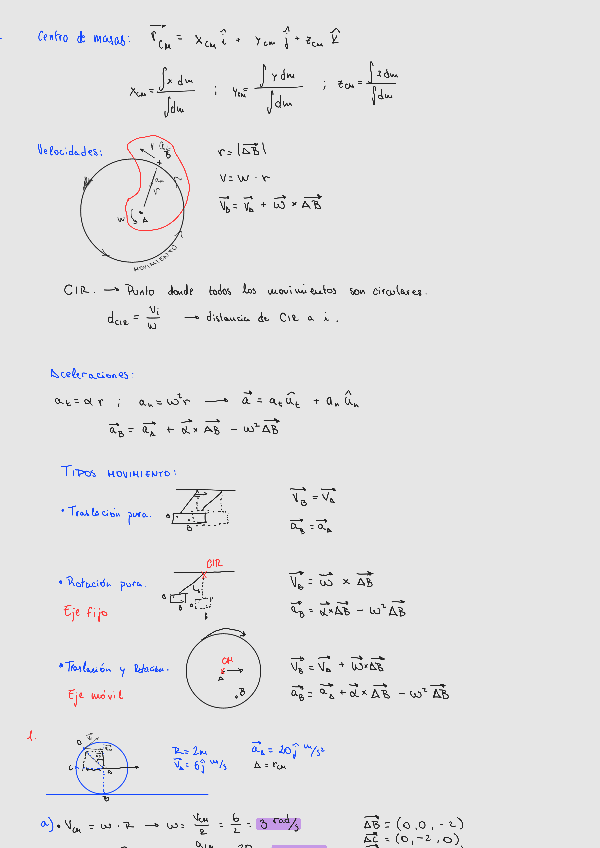 Centro de masas: r_CM = x_CM î + y_CM ĵ + z_CM k̂
x_CM = ∫x dm / ∫dm ; y_CM = ∫y dm / ∫dm ; z_CM = ∫z dm / ∫dm
Velocidades:
r = |AB|
v = w · r
V_B = V_A + ω × AB
MOVIMIENTO
CIR. → Punto donde todos los movimientos son circulares.
d_CIR = Vi / w → distancia de CIR a i.
Aceleraciones:
a_t = α r ; a_n = w² r → a = a_t û_t + a_n û_n
a_B = a_A + α × AB − w² AB
TIPOS MOVIMIENTO:
• Traslación pura.
V_B = V_A
a_B = a_A
CIR
• Rotación pura.
V_B = w × AB
Eje fijo
a_B = α × AB − w² AB
CM
• Traslación y Rotación.
V_B = V_A + w × AB
Eje móvil
a_B = a_A + α × AB − w² AB
1.
R = 2m a_A = 20ĵ m/s²
V_A = 6ĵ m/s A = r_CM
a) • V_CM = w · R → w = V_CM / R = 6 / 2 = 3 rad/s
AB = (0, 0, −2)
AC = (0, −2, 0)